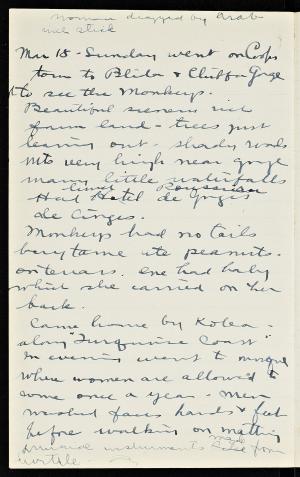 woman dragged by Arab
with stick
Mar 18 - Sunday went on Cooks
tour to Blida & Chiffa Gorge
to see the Monkeys.
Beautiful scenery rich
farm land - trees just
leaving out - shady roads
Mts very high near gorge
many little waterfalls
Had lunch Hotel de
de Singes.
Monkeys had no tails
very tame ate peanuts -
one had baby
which she carried on her
back.
Came home by Kolea -
along "Turquoise Coast"
In evening went to mosque
where women are allowed to
come once a year - Men
washed faces hands & feet
before walking on matting
instruments made from
turtle -